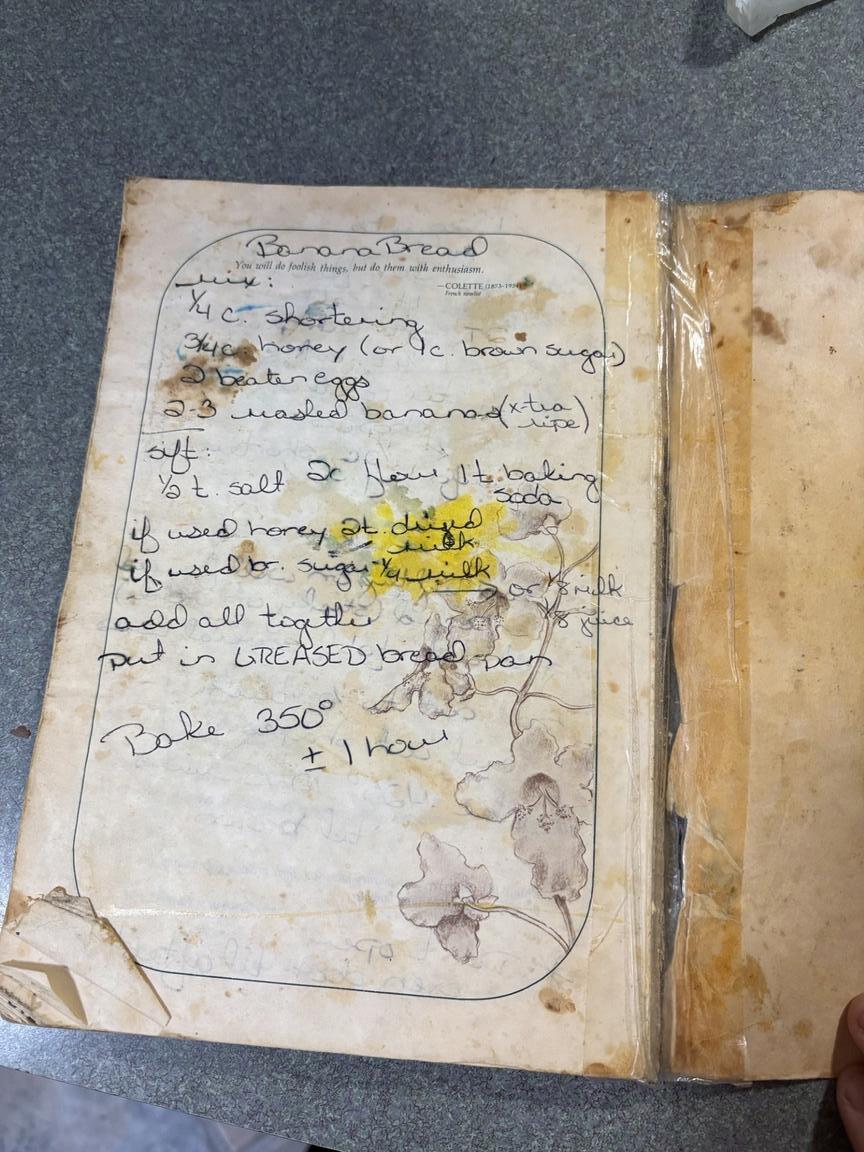 Banana Bread
You will do foolish things, but do them with enthusiasm.
—COLETTE (1873-1954)
French novelist
mix:
1/4 c. shortering
3/4 c. honey (or 1c. brown sugar)
2 beaten eggs
2-3 mashed bananas (x-tra
ripe)
sift:
1/2 t. salt 2c flour 1 t. baking
soda
if used honey 2t. dried
milk
if used br. sugar 1/4 milk
or 1/8 milk
1/8 juice
add all together
put in GREASED bread pan
Bake 350°
± 1 hour